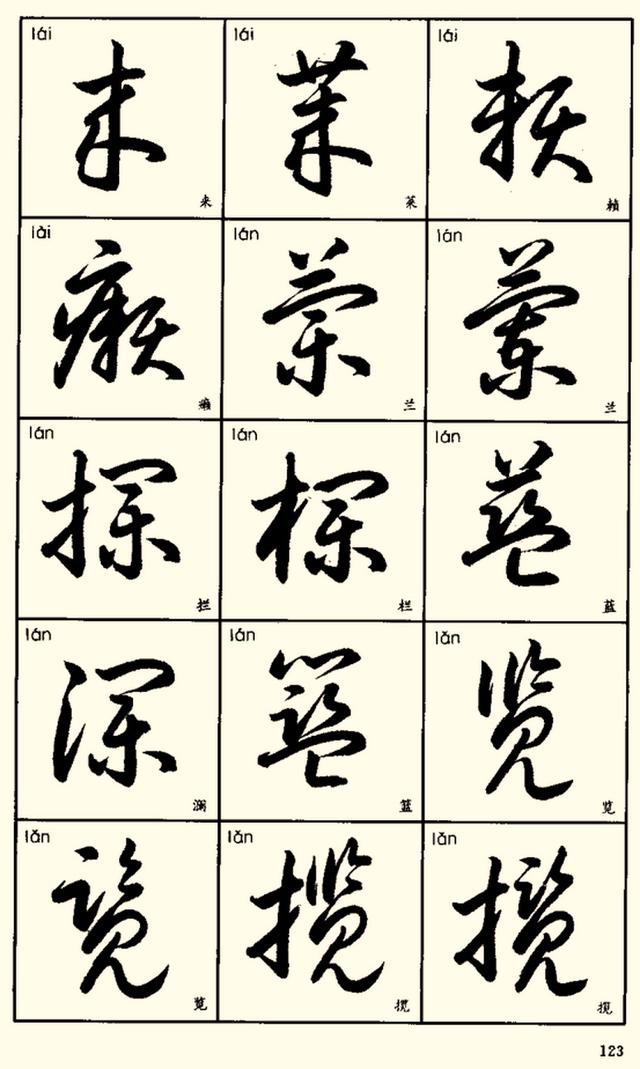 lái lái lái
来 莱 赖
来 莱 赖
lài lán lán
癞 兰 兰
癞 兰 兰
lán lán lán
拦 栏 蓝
拦 栏 蓝
lán lán lǎn
澜 篮 览
澜 篮 览
lǎn lǎn lǎn
览 揽 揽
览 揽 揽
123